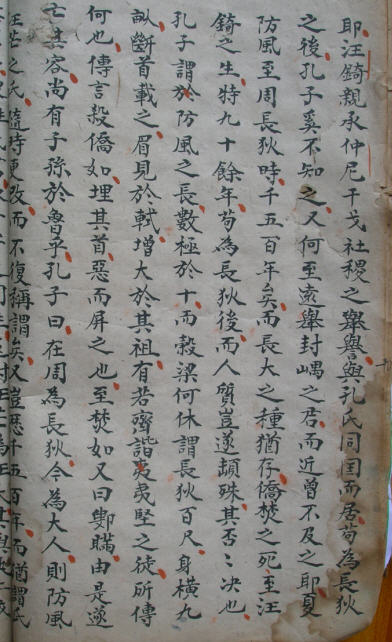 即汪錡親承仲尼干戈社稷之舉譽與孔氏同囯而居苟為長狄
之後孔子奚不知之又何至遠舉封嵎之君而近曾不及之耶夏
防風至周長狄時千五百年矣而長大之種猶存僑焚之死至汪
錡之生特九十餘年苟為長狄後而人質豈遂頓殊其否〻决也
孔子謂於防風之長數極於十而穀梁何休謂長狄百尺身橫九
畝斷首載之眉見於軾增大於其祖有若齊諧夷堅之徒所傳
何也傳言殺僑如埋其首惡而屏之也至焚如又曰鄭瞞由是遂
亡其容尚有子孫於魯乎孔子曰在周為長狄今為大人則防風
汪芒之氏隨時更改而不復稱謂矣又豈歷千五百年而猶謂